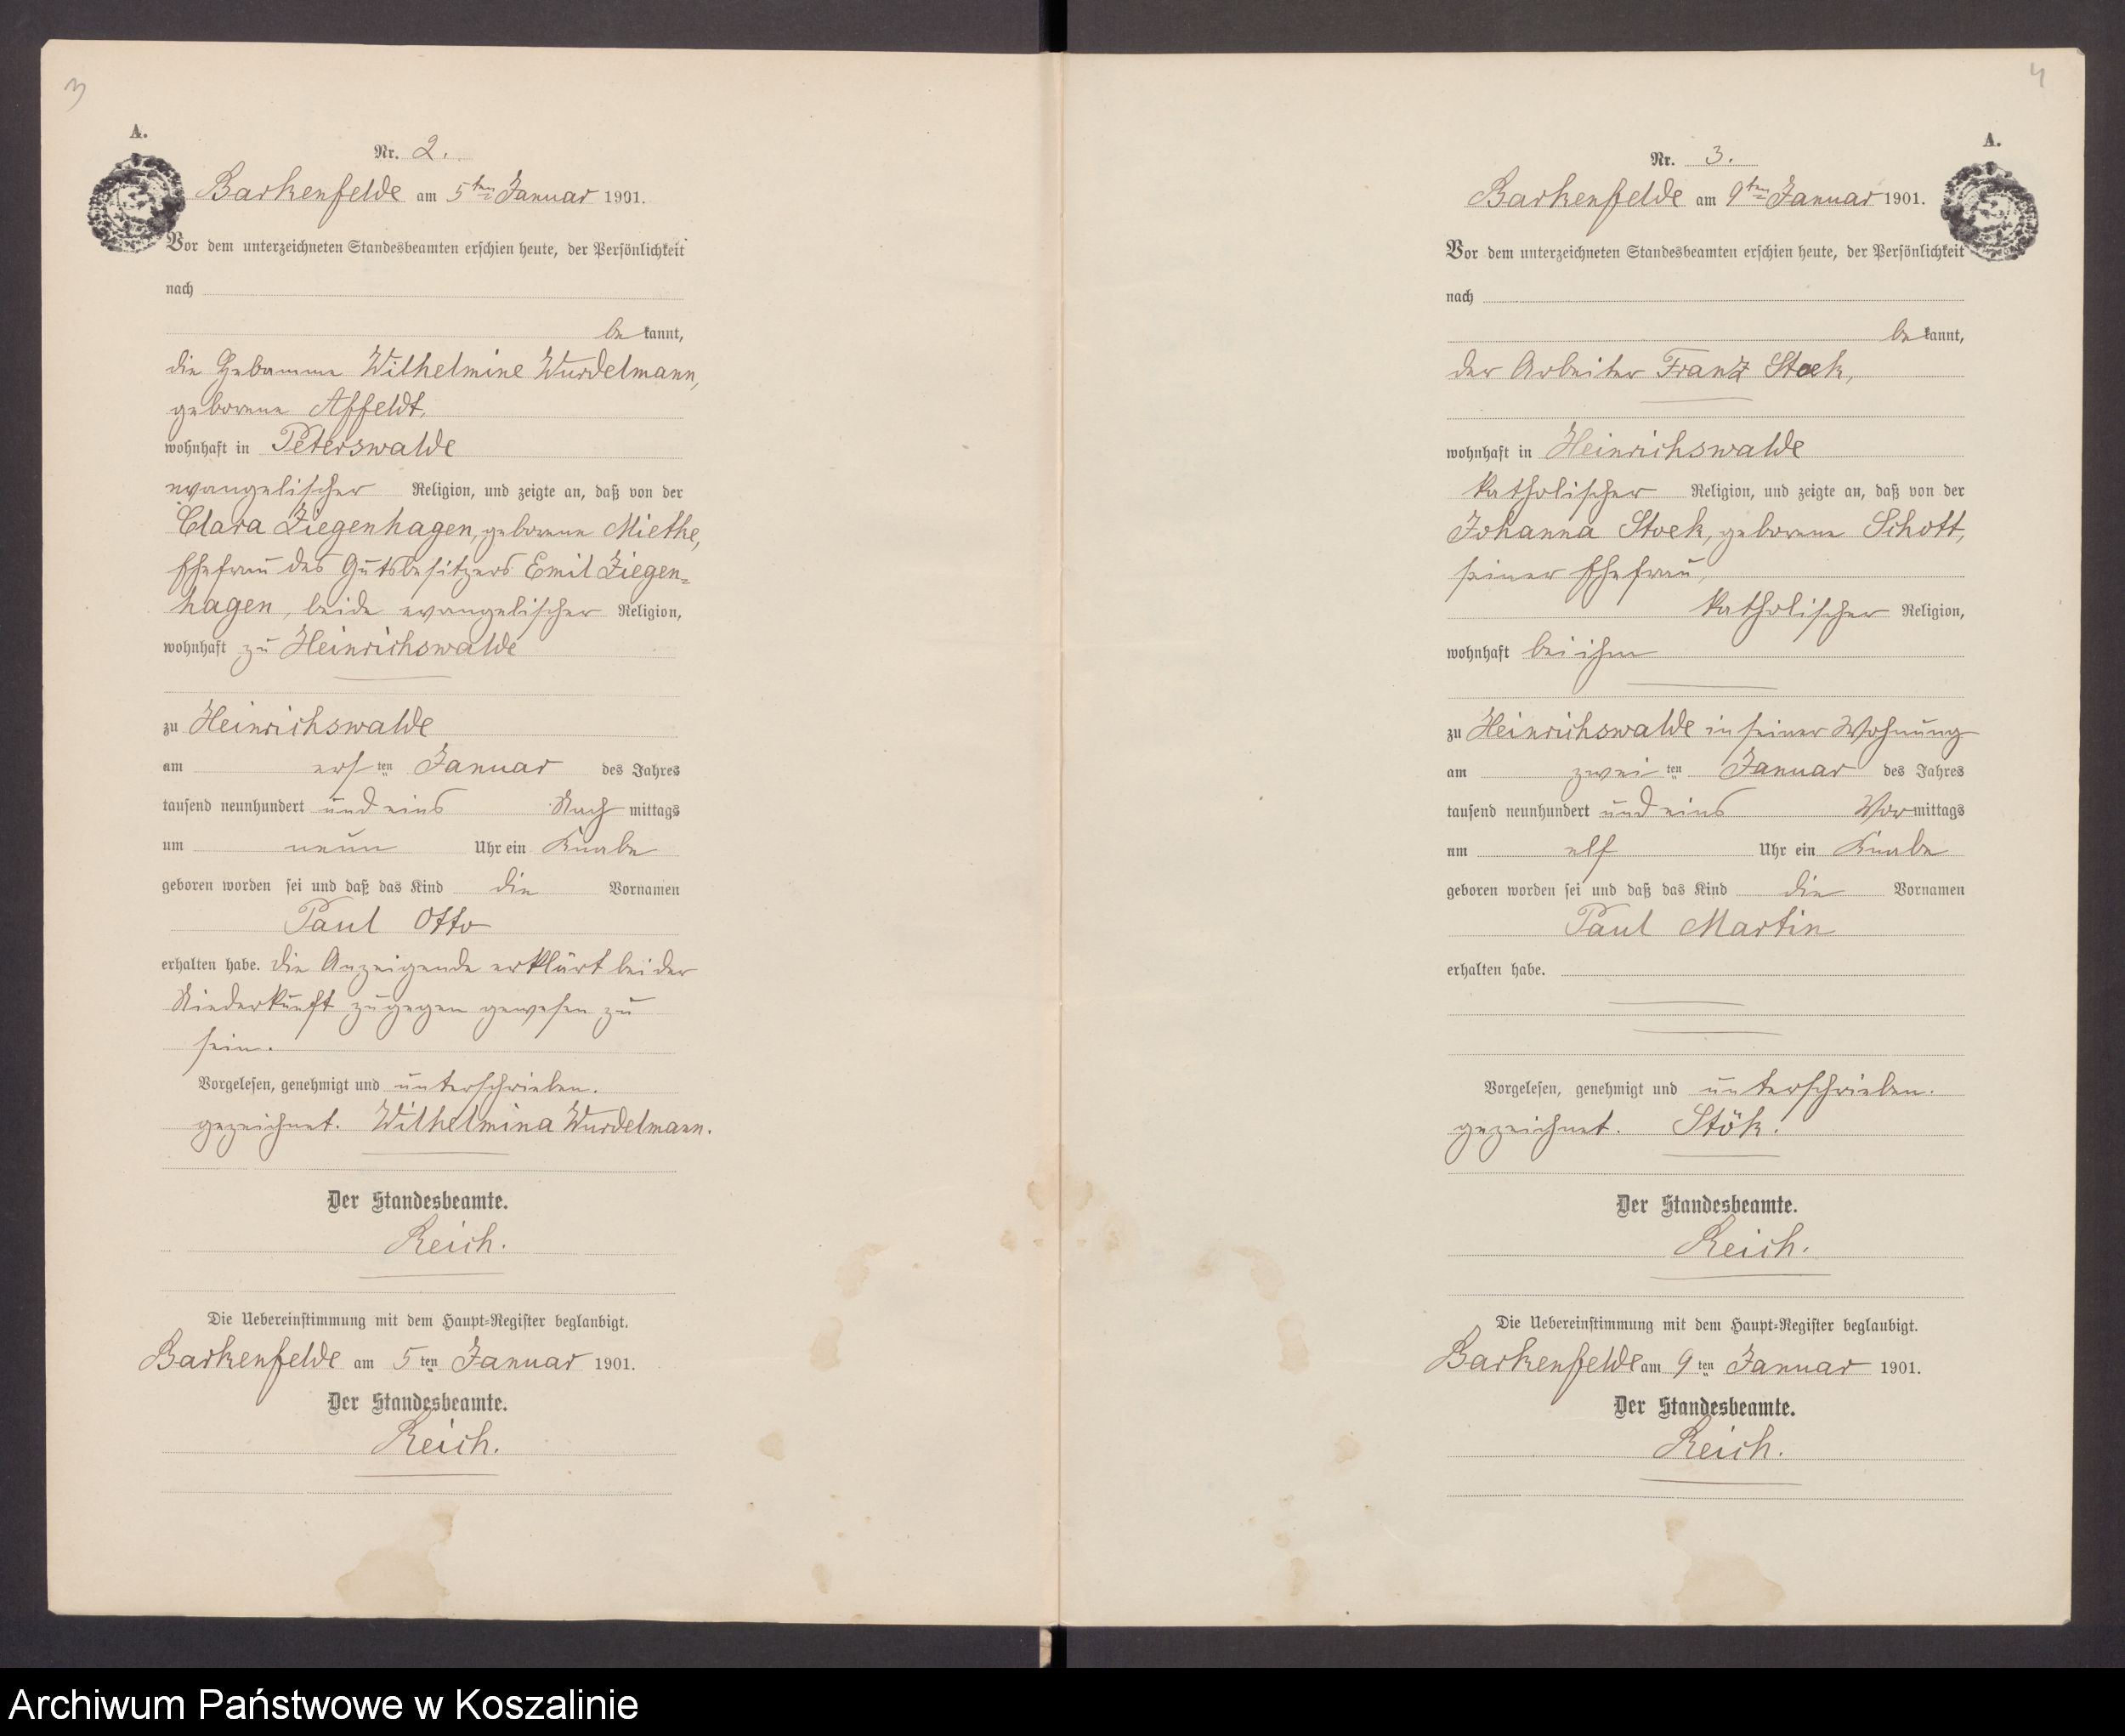 3
A.
Nr. 2.
Barkenfelde am 5ten Januar 1901.
Vor dem unterzeichneten Standesbeamten erschien heute, der Persönlichkeit
nach
be kannt,
die Hebamme Wilhelmine Wurdelmann,
geborene Affeldt,
wohnhaft in Peterswalde
evangelischer Religion, und zeigte an, daß von der
Clara Ziegenhagen, geborene Miethe,
Ehefrau des Gutsbesitzers Emil Ziegen-
hagen, beide evangelischer Religion,
wohnhaft zu Heinrichswalde
zu Heinrichswalde
am ersten Januar des Jahres
tausend neunhundert und eins Nach mittags
um neun Uhr ein Knabe
geboren worden sei und daß das Kind die Vornamen
Paul Otto
erhalten habe. Die Anzeigende erklärt bei der
Niederkunft zugegen gewesen zu
sein.
Vorgelesen, genehmigt und unterschrieben.
gezeichnet. Wilhelmina Wurdelmann.
Der Standesbeamte.
Reich.
Die Uebereinstimmung mit dem Haupt-Register beglaubigt.
Barkenfelde am 5ten Januar 1901.
Der Standesbeamte.
Reich.
4
A.
Nr. 3.
Barkenfelde am 9ten Januar 1901.
Vor dem unterzeichneten Standesbeamten erschien heute, der Persönlichkeit
nach
be kannt,
der Arbeiter Franz Stoek,
wohnhaft in Heinrichswalde
katholischer Religion, und zeigte an, daß von der
Johanna Stoek, geborene Schott,
seiner Ehefrau,
katholischer Religion,
wohnhaft bei ihm
zu Heinrichswalde in seiner Wohnung
am zweiten Januar des Jahres
tausend neunhundert und eins Vor mittags
um elf Uhr ein Knabe
geboren worden sei und daß das Kind die Vornamen
Paul Martin
erhalten habe.
Vorgelesen, genehmigt und unterschrieben.
gezeichnet. Stök.
Der Standesbeamte.
Reich.
Die Uebereinstimmung mit dem Haupt-Register beglaubigt.
Barkenfelde am 9ten Januar 1901.
Der Standesbeamte.
Reich.
Archiwum Państwowe w Koszalinie